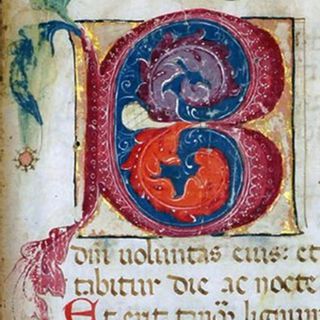 B
dñi uoluntas eius: et
tabitur die ac nocte
Et erit tanq̃